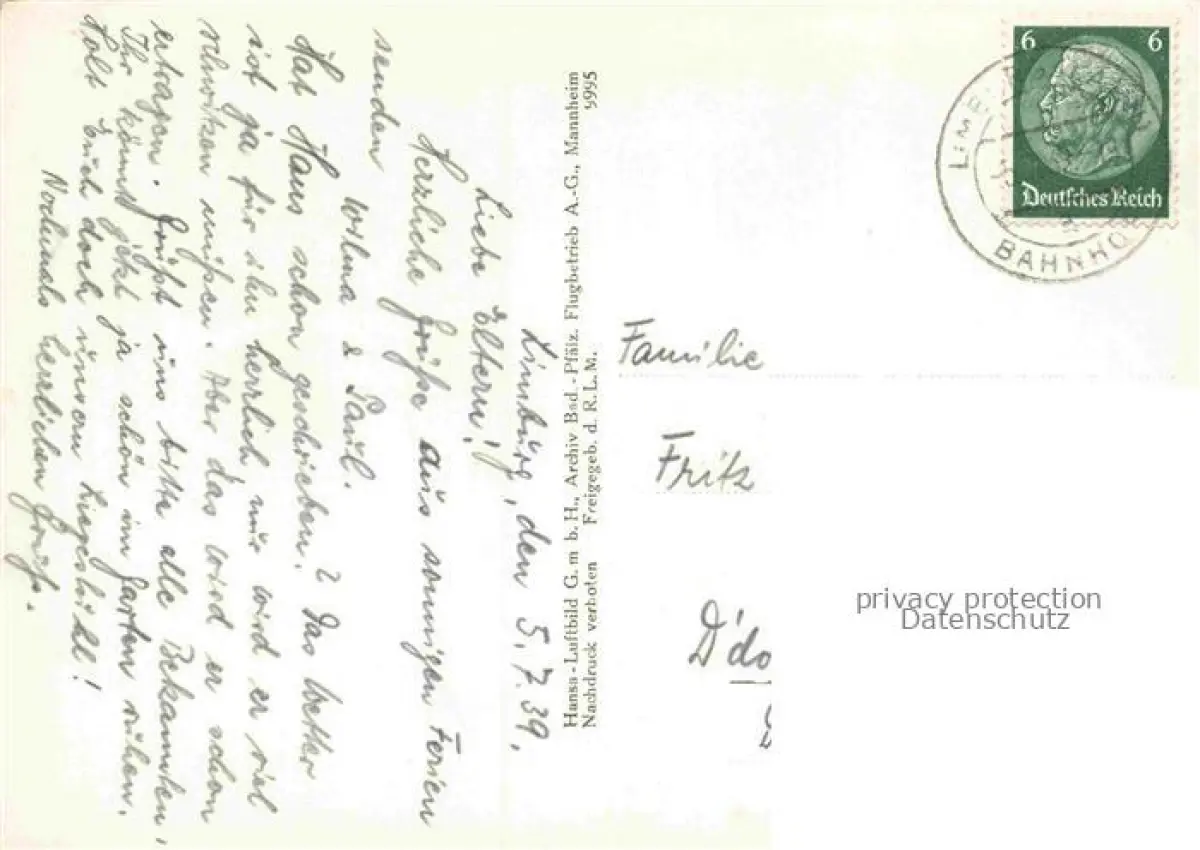 Limburg, den 5.7.39.
Liebe Eltern!
Herzliche Grüße aus sonnigen Ferien
senden
Wilma & Paul.
Hat Hans schon geschrieben? Das Wetter
ist ja für ihn herrlich nur wird er viel
schwitzen müßen. Aber das wird er schon
ertragen. Grüßt uns bitte alle Bekannten.
Ihr könnt jetzt ja schön im Garten ruhen.
Holt Euch doch unsern Liegestuhl!
Nochmals herzlichen Gruß.
Hansa-Luftbild G. m b. H., Archiv Bad.-Pfälz. Flugbetrieb A.-G., Mannheim
Nachdruck verboten Freigegeb. d. R. L. M. 9995
6 6
Deutsches Reich
BAHNHO
Familie
Fritz
D'do
privacy protection
Datenschutz